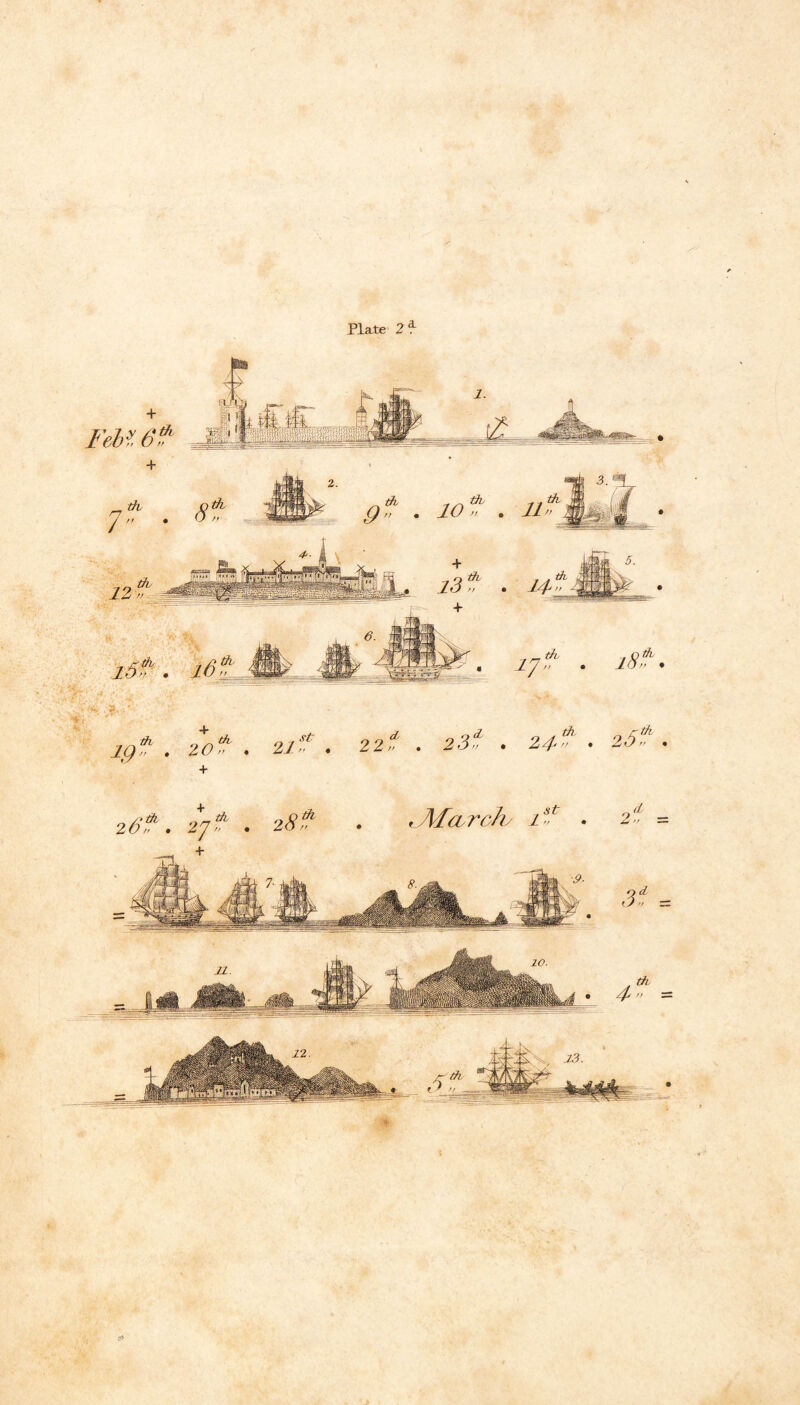 Plate 2d.
1.
+
Feby. 6th
+
.
7th . 8th 2. 9th . 10th . 11th 3. .
12th 4. . + 13th + . 14th 5. .
15th . 16th 6. . 17th . 18th .
19th . + 20th + . 21st . 22d . 23d . 24th . 25th .
26th . + 27th + . 28th . March 1st . 2d =
= 7. 8. 9. . 3d =
= 11. 10. . 4th =
= 12. . 5th 13. .